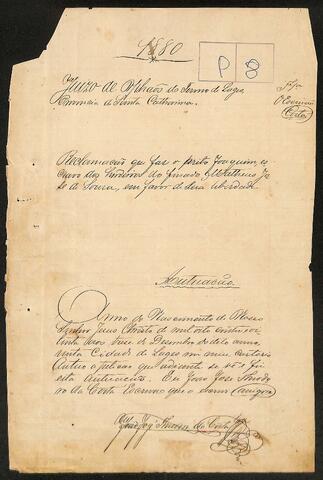 1880
P 8
Juizo de Orphãos do Termo de Lages
Provincia de Santa Catharina
O Escrivão
Costa
Reclamação que faz o preto Joaquim, es
cravo dos herdeiros do finado Matheus Jo
sé de Souza, em favor de sua liberdade
Autuação
Anno do Nascimento de Nosso
Senhor Jesus Christo de mil oito centos oi
tenta aos treze de Dezembro do dito anno
nesta Cidade de Lages em meu cartorio
Autuo a petição que adiante se vê e fiz
esta Autuação. Eu João José Theodo
ro da Costa Escrivão que o
João José Theodoro da Costa